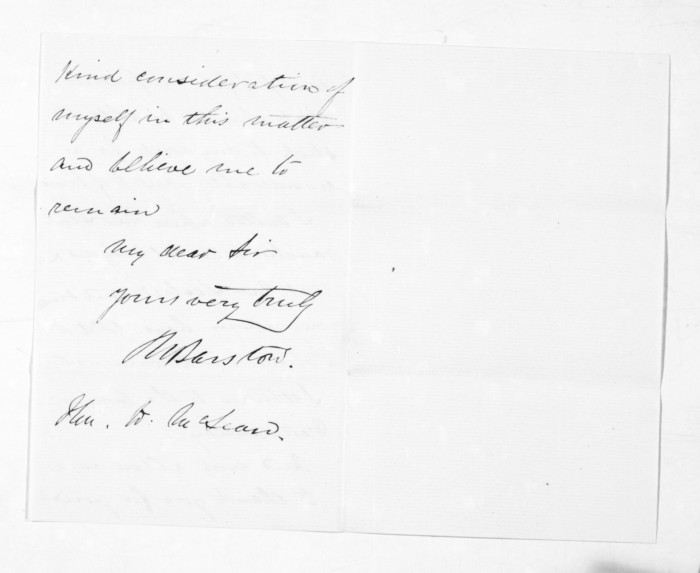 kind consideration of
myself in this matter
and believe me to
remain
My dear Sir
Yours very truly
Barstow.
Hon. D. McLean.